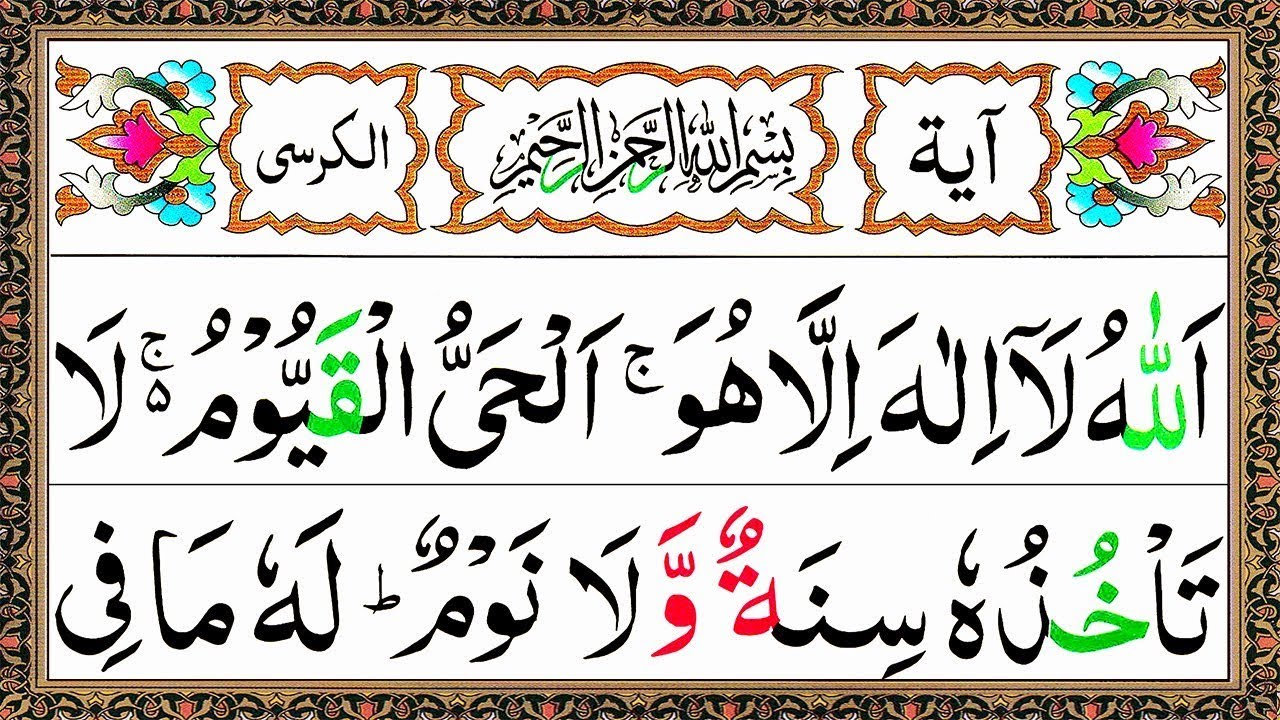 آية بِسْمِ اللهِ الرَّحْمٰنِ الرَّحِيْمِ الكرسى
اَللّٰهُ لَاۤ اِلٰهَ اِلَّا هُوَ ۚ اَلْحَیُّ الْقَیُّوْمُ ۚ۬ لَا
تَاْخُذُهٗ سِنَةٌ وَّلَا نَوْمٌ ؕ لَهٗ مَا فِی